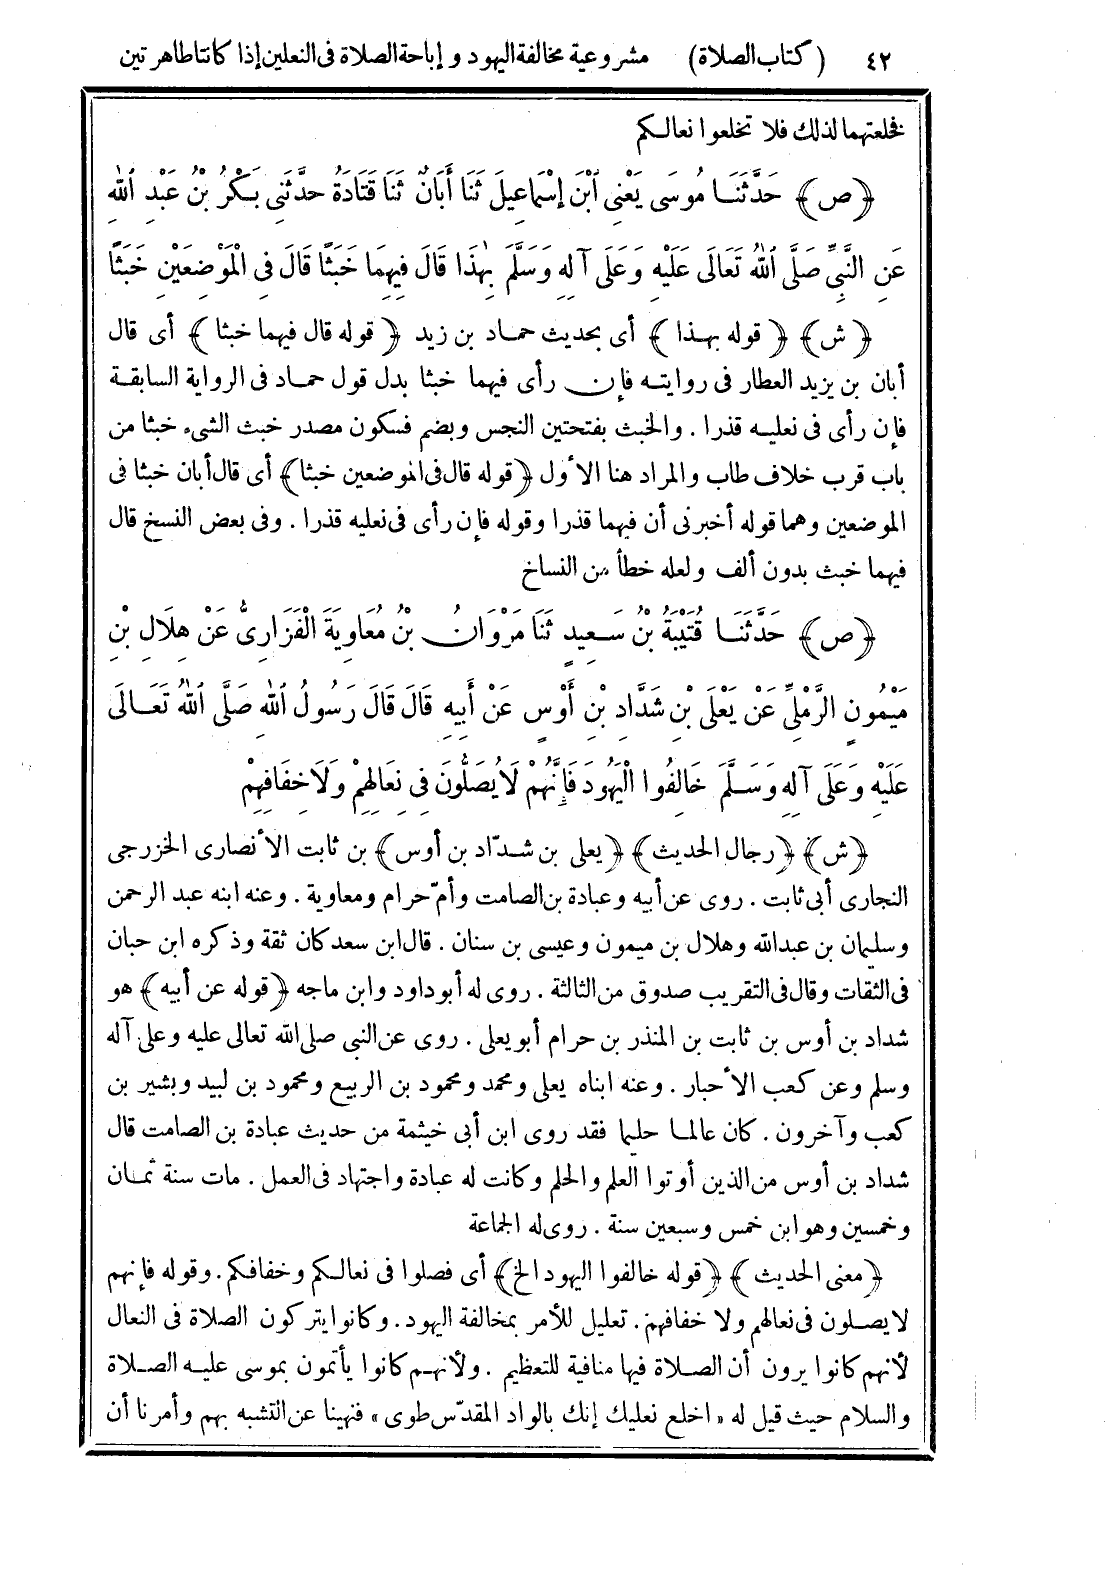 ٤٢ (كتاب الصلاة) مشروعية مخالفة اليهود وإباحة الصلاة فى النعلين إذا كانتا طاهرتين
فخلعتهما لذلك فلا تخلعوا نعالكم
﴿ص﴾ حَدَّثَنَا مُوسَى يَعْنِى ابْنَ إِسْمَاعِيلَ ثَنَا أَبَانُ ثَنَا قَتَادَةُ حَدَّثَنِى بَكْرُ بْنُ عَبْدِ اللهِ
عَنِ النَّبِيِّ صَلَّى اللهُ تَعَالَى عَلَيْهِ وَعَلَى آلِهِ وَسَلَّمَ بِهٰذَا قَالَ فِيهِمَا خَبَثًا قَالَ فِى الْمَوْضِعَيْنِ خَبَثًا
﴿ش﴾ ﴿قوله بهذا﴾ أى بحديث حماد بن زيد ﴿قوله قال فيهما خبثا﴾ أى قال
أبان بن يزيد العطار فى روايته فإن رأى فيهما خبثا بدل قول حماد فى الرواية السابقة
فإن رأى فى نعليه قذرا . والخبث بفتحتين النجس وبضم فسكون مصدر خبث الشىء خبثا من
باب قرب خلاف طاب والمراد هنا الأول ﴿قوله قال فى الموضعين خبثا﴾ أى قال أبان خبثا فى
الموضعين وهما قوله أخبرنى أن فيهما قذرا وقوله فإن رأى فى نعليه قذرا . وفى بعض النسخ قال
فيهما خبث بدون ألف ولعله خطأ من النساخ
﴿ص﴾ حَدَّثَنَا قُتَيْبَةُ بْنُ سَعِيدٍ ثَنَا مَرْوَانُ بْنُ مُعَاوِيَةَ الْفَزَارِىُّ عَنْ هِلَالِ بْنِ
مَيْمُونٍ الرَّمْلِيِّ عَنْ يَعْلَى بْنِ شَدَّادِ بْنِ أَوْسٍ عَنْ أَبِيهِ قَالَ قَالَ رَسُولُ اللهِ صَلَّى اللهُ تَعَالَى
عَلَيْهِ وَعَلَى آلِهِ وَسَلَّمَ خَالِفُوا الْيَهُودَ فَإِنَّهُمْ لَا يُصَلُّونَ فِى نِعَالِهِمْ وَلَا خِفَافِهِمْ
﴿ش﴾ ﴿رجال الحديث﴾ ﴿يعلى بن شدّاد بن أوس﴾ بن ثابت الأنصارى الخزرجى
النجارى أبى ثابت . روى عن أبيه وعبادة بن الصامت وأمّ حرام ومعاوية . وعنه ابنه عبد الرحمن
وسليمان بن عبدالله وهلال بن ميمون وعيسى بن سنان . قال ابن سعد كان ثقة وذكره ابن حبان
فى الثقات وقال فى التقريب صدوق من الثالثة . روى له أبو داود وابن ماجه ﴿قوله عن أبيه﴾ هو
شداد بن أوس بن ثابت بن المنذر بن حرام أبو يعلى . روى عن النبى صلى الله تعالى عليه وعلى آله
وسلم وعن كعب الأحبار . وعنه ابناه يعلى ومحمد ومحمود بن الربيع ومحمود بن لبيد وبشير بن
كعب وآخرون . كان عالما حليما فقد روى ابن أبى خيثمة من حديث عبادة بن الصامت قال
شداد بن أوس من الذين أوتوا العلم والحلم وكانت له عبادة واجتهاد فى العمل . مات سنة ثمان
وخمسين وهو ابن خمس وسبعين سنة . روى له الجماعة
﴿معنى الحديث﴾ ﴿قوله خالفوا اليهود الخ﴾ أى فصلوا فى نعالكم وخفافكم . وقوله فإنهم
لا يصلون فى نعالهم ولا خفافهم . تعليل للأمر بمخالفة اليهود . وكانوا يتركون الصلاة فى النعال
لأنهم كانوا يرون أن الصلاة فيها منافية للتعظيم . ولأنهم كانوا يأتمون بموسى عليه الصلاة
والسلام حيث قيل له «اخلع نعليك إنك بالواد المقدّس طوى» فنهينا عن التشبه بهم وأمرنا أن